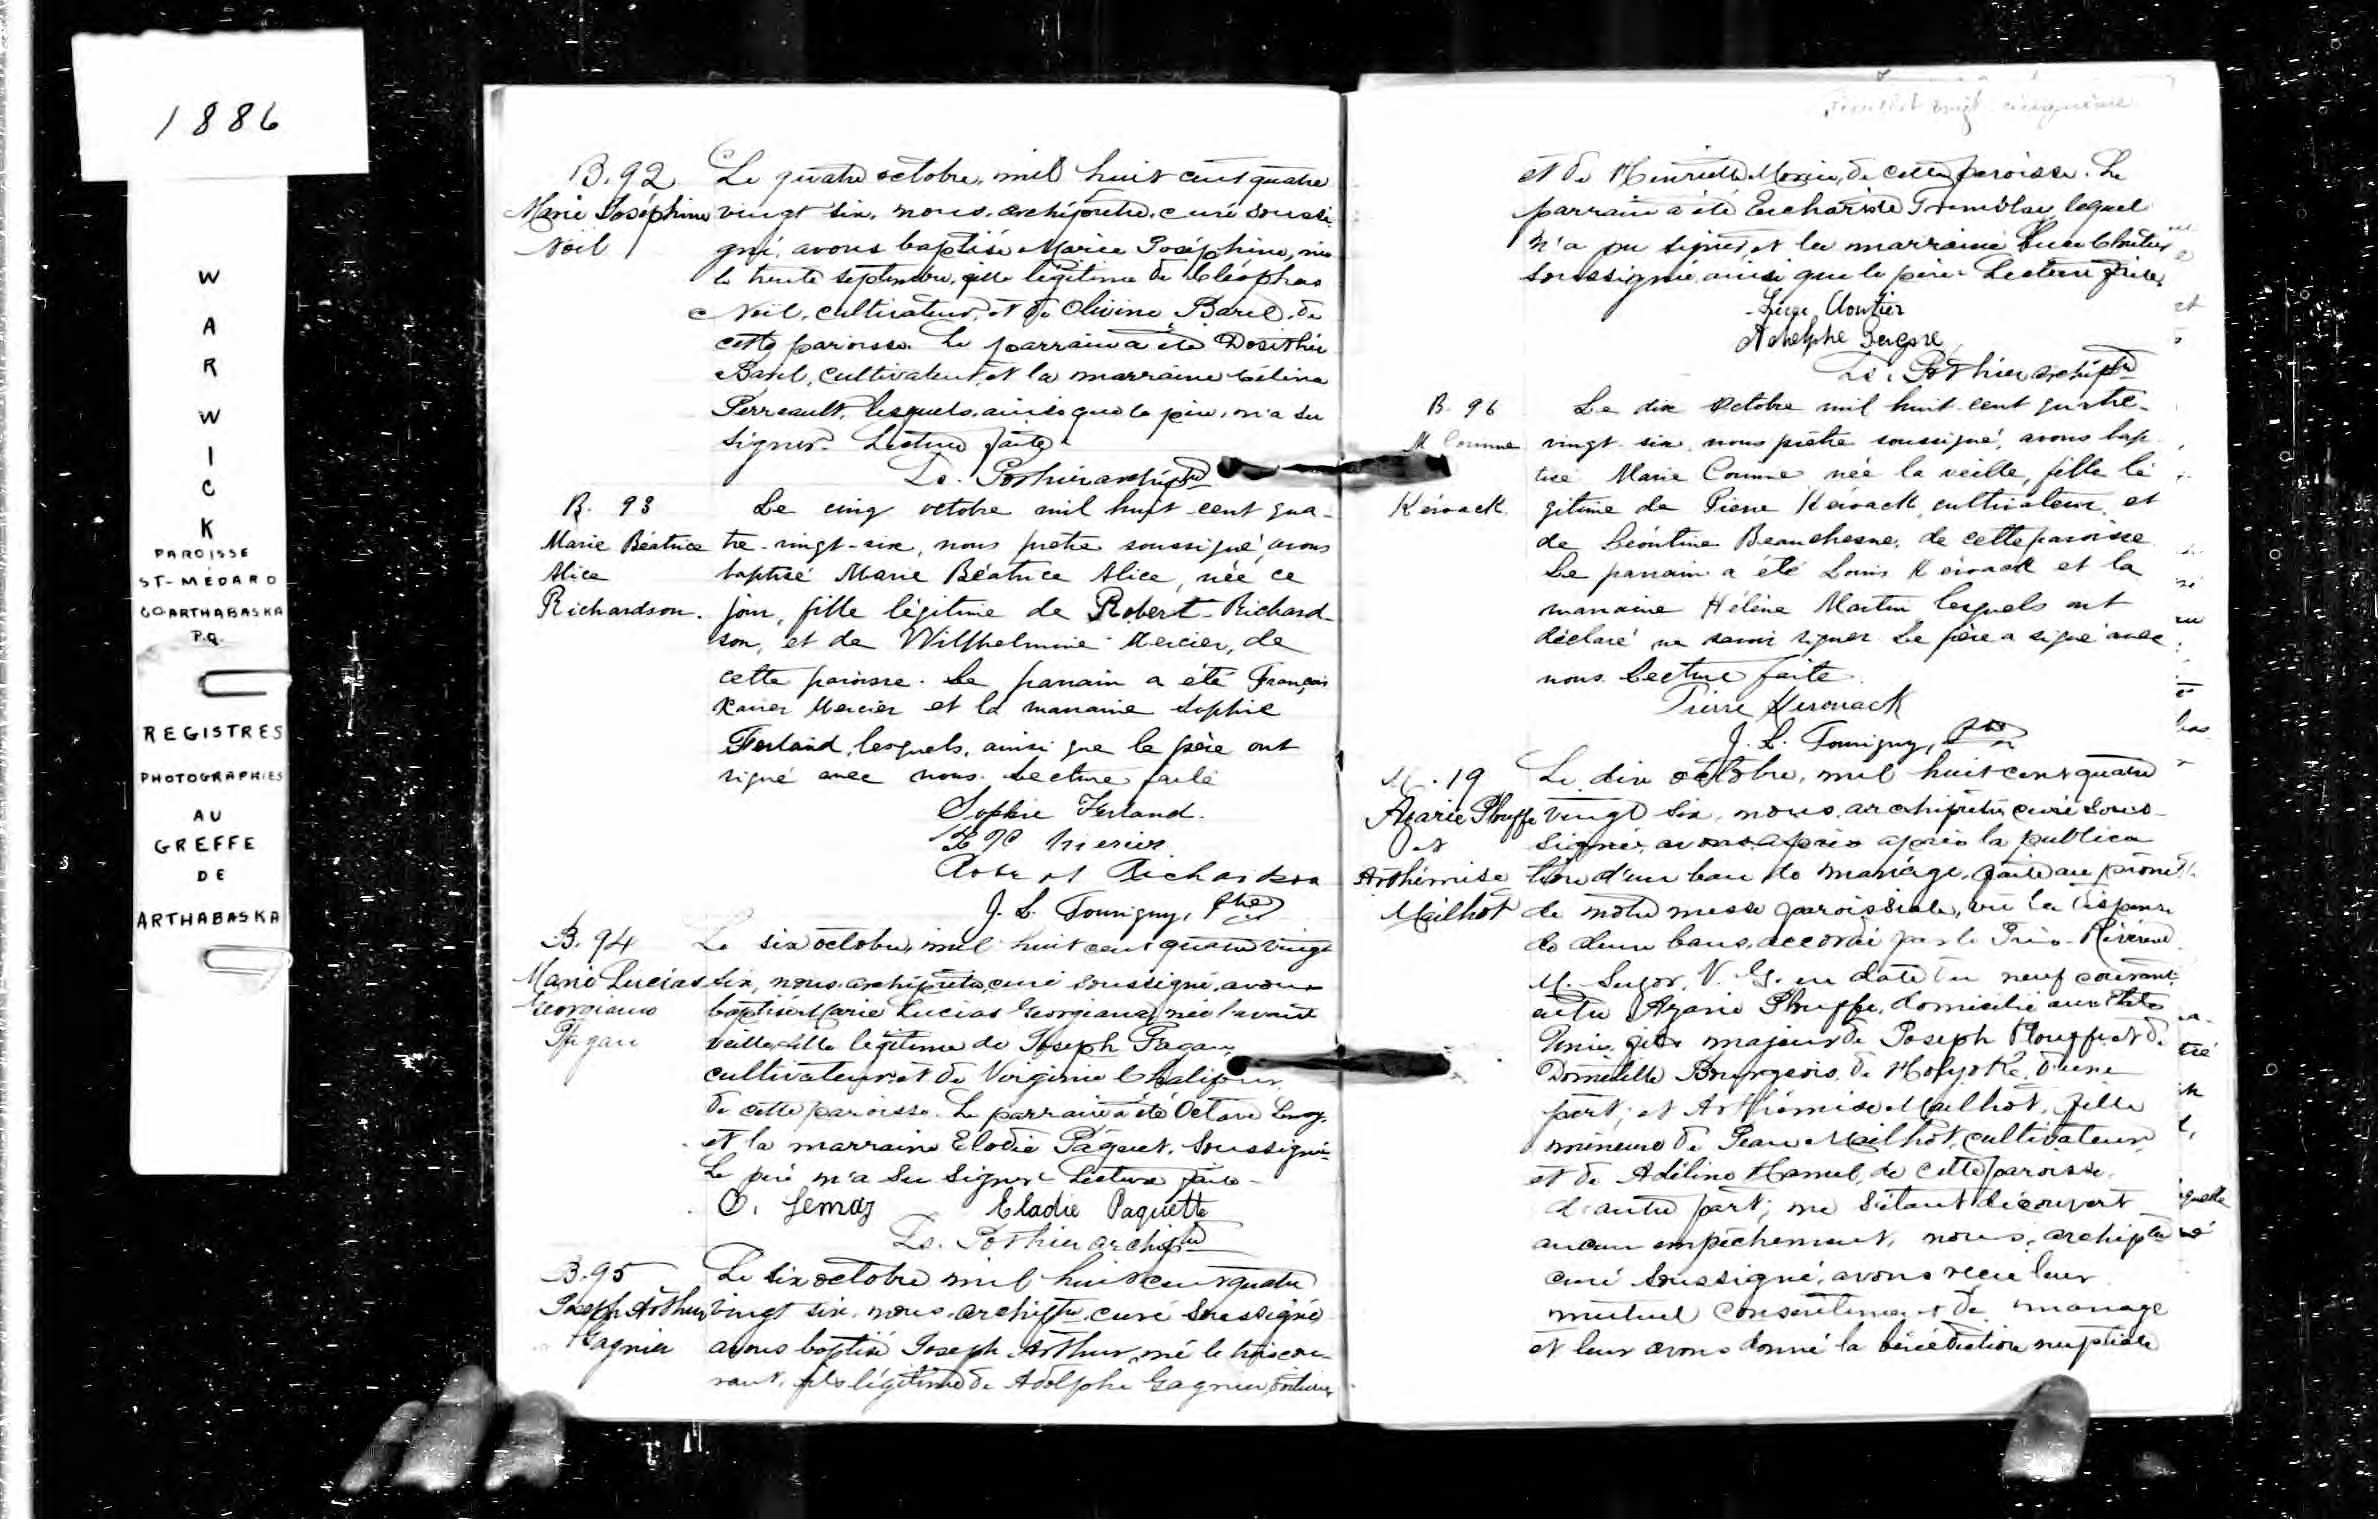 1886
WARWICK
PAROISSE
ST-MÉDARD
CO ARTHABASKA
P.Q.
REGISTRES
PHOTOGRAPHIES
AU
GREFFE
DE
ARTHABASKA
B. 92
Marie Joséphine
Noël
Le quatre octobre, mil huit cent quatre
vingt six, nous, archiprêtre, curé soussi-
gné, avons baptisé Marie Joséphine, née
le trente septembre, fille légitime de Cléophas
Noël, cultivateur, et de Olivine Baril, de
cette paroisse. Le parrain a été Dosithée
Baril, cultivateur, et la marraine Célina
Perreault, lesquels, ainsi que le père, n'a su
signer. Lecture faite.
Ls. Pothier archiptre
B. 93
Marie Béatrice
Alice
Richardson.
Le cinq octobre mil huit-cent qua-
tre-vingt-six, nous prêtre soussigné, avons
baptisé Marie Béatrice Alice, née ce
jour, fille légitime de Robert Richard-
son, et de Wilhelmine Mercier, de
cette paroisse. Le parrain a été François
Xavier Mercier et la marraine Sophie
Ferland, lesquels, ainsi que le père ont
signé avec nous. Lecture faite
Sophie Ferland.
F X Mercier
Robert Richardson
J. L. Tourigny, Ptre
B. 94
Marie Lucias
Georgiana
Pagau
Le six octobre, mil huit cent quatre vingt
six, nous archiprêtre, curé soussigné, avons
baptisé Marie Lucias Georgiana, née l'avant
veille, fille légitime de Joseph Pagau,
cultivateur, et de Virginie Chalifour,
de cette paroisse. Le parrain a été Octave Lemay
et la marraine Elodie Paquet, soussignés.
Le père n'a su signer. Lecture faite.
O. Lemay Elodie Paquette
Ls. Pothier archiptre
B. 95
Joseph Arthur
Gagnier
Le six octobre mil huit cent quatre
vingt six, nous, archiptre, curé soussigné
avons baptisé Joseph Arthur, né le trois cou-
rant, fils légitime de Adolphe Gagnier,
feuillet vingt-cinquième
et de Henriette Morin, de cette paroisse. Le
parrain a été Euchariste Tremblay, lequel
n'a pu signer, et la marraine Luce Cloutier
soussignée, ainsi que le père. Lecture faite.
Luce Cloutier
Adolphe
Ls. Pothier archiptre
B. 96
M Corinne
Kérouack.
Le dix octobre mil huit-cent quatre-
vingt-six, nous prêtre soussigné, avons bap-
tisé Marie Corinne née la veille, fille lé-
gitime de Pierre Kérouack, cultivateur, et
de Léontine Beauchesne, de cette paroisse
Le parrain a été Louis Kérouack et la
marraine Hélène Martin lesquels ont
déclaré ne savoir signer. Le père a signé avec
nous. Lecture faite.
Pierre Kerouack
J. L. Tourigny, Ptre
M. 19
Azarie Plouffe
et
Arthémise
Mailhot
Le dix octobre, mil huit cent quatre
vingt six, nous, archiprêtre, curé sous-
signé, avons après après la publica
tion d'un ban de mariage, faite au prône
de notre messe paroissiale, vu la dispense
de deux bans, accordé par le Très-Révérend
M. Suzor, V. G. en date du neuf courant
entre Azarie Plouffe, domicilié aux Etats
Unis, fils majeur de Joseph Plouffe et de
Domitille Bourgeois, de Holyoke, d'une
part; et Arthémise Mailhot, fille
mineure de Jean Mailhot, cultivateur,
et de Adéline Hamel, de cette paroisse,
d'autre part; ne s'étant découvert
aucun empêchement, nous, archiptre
curé soussigné, avons reçu leur
mutuel consentement de mariage
et leur avons donné la bénédiction nuptiale